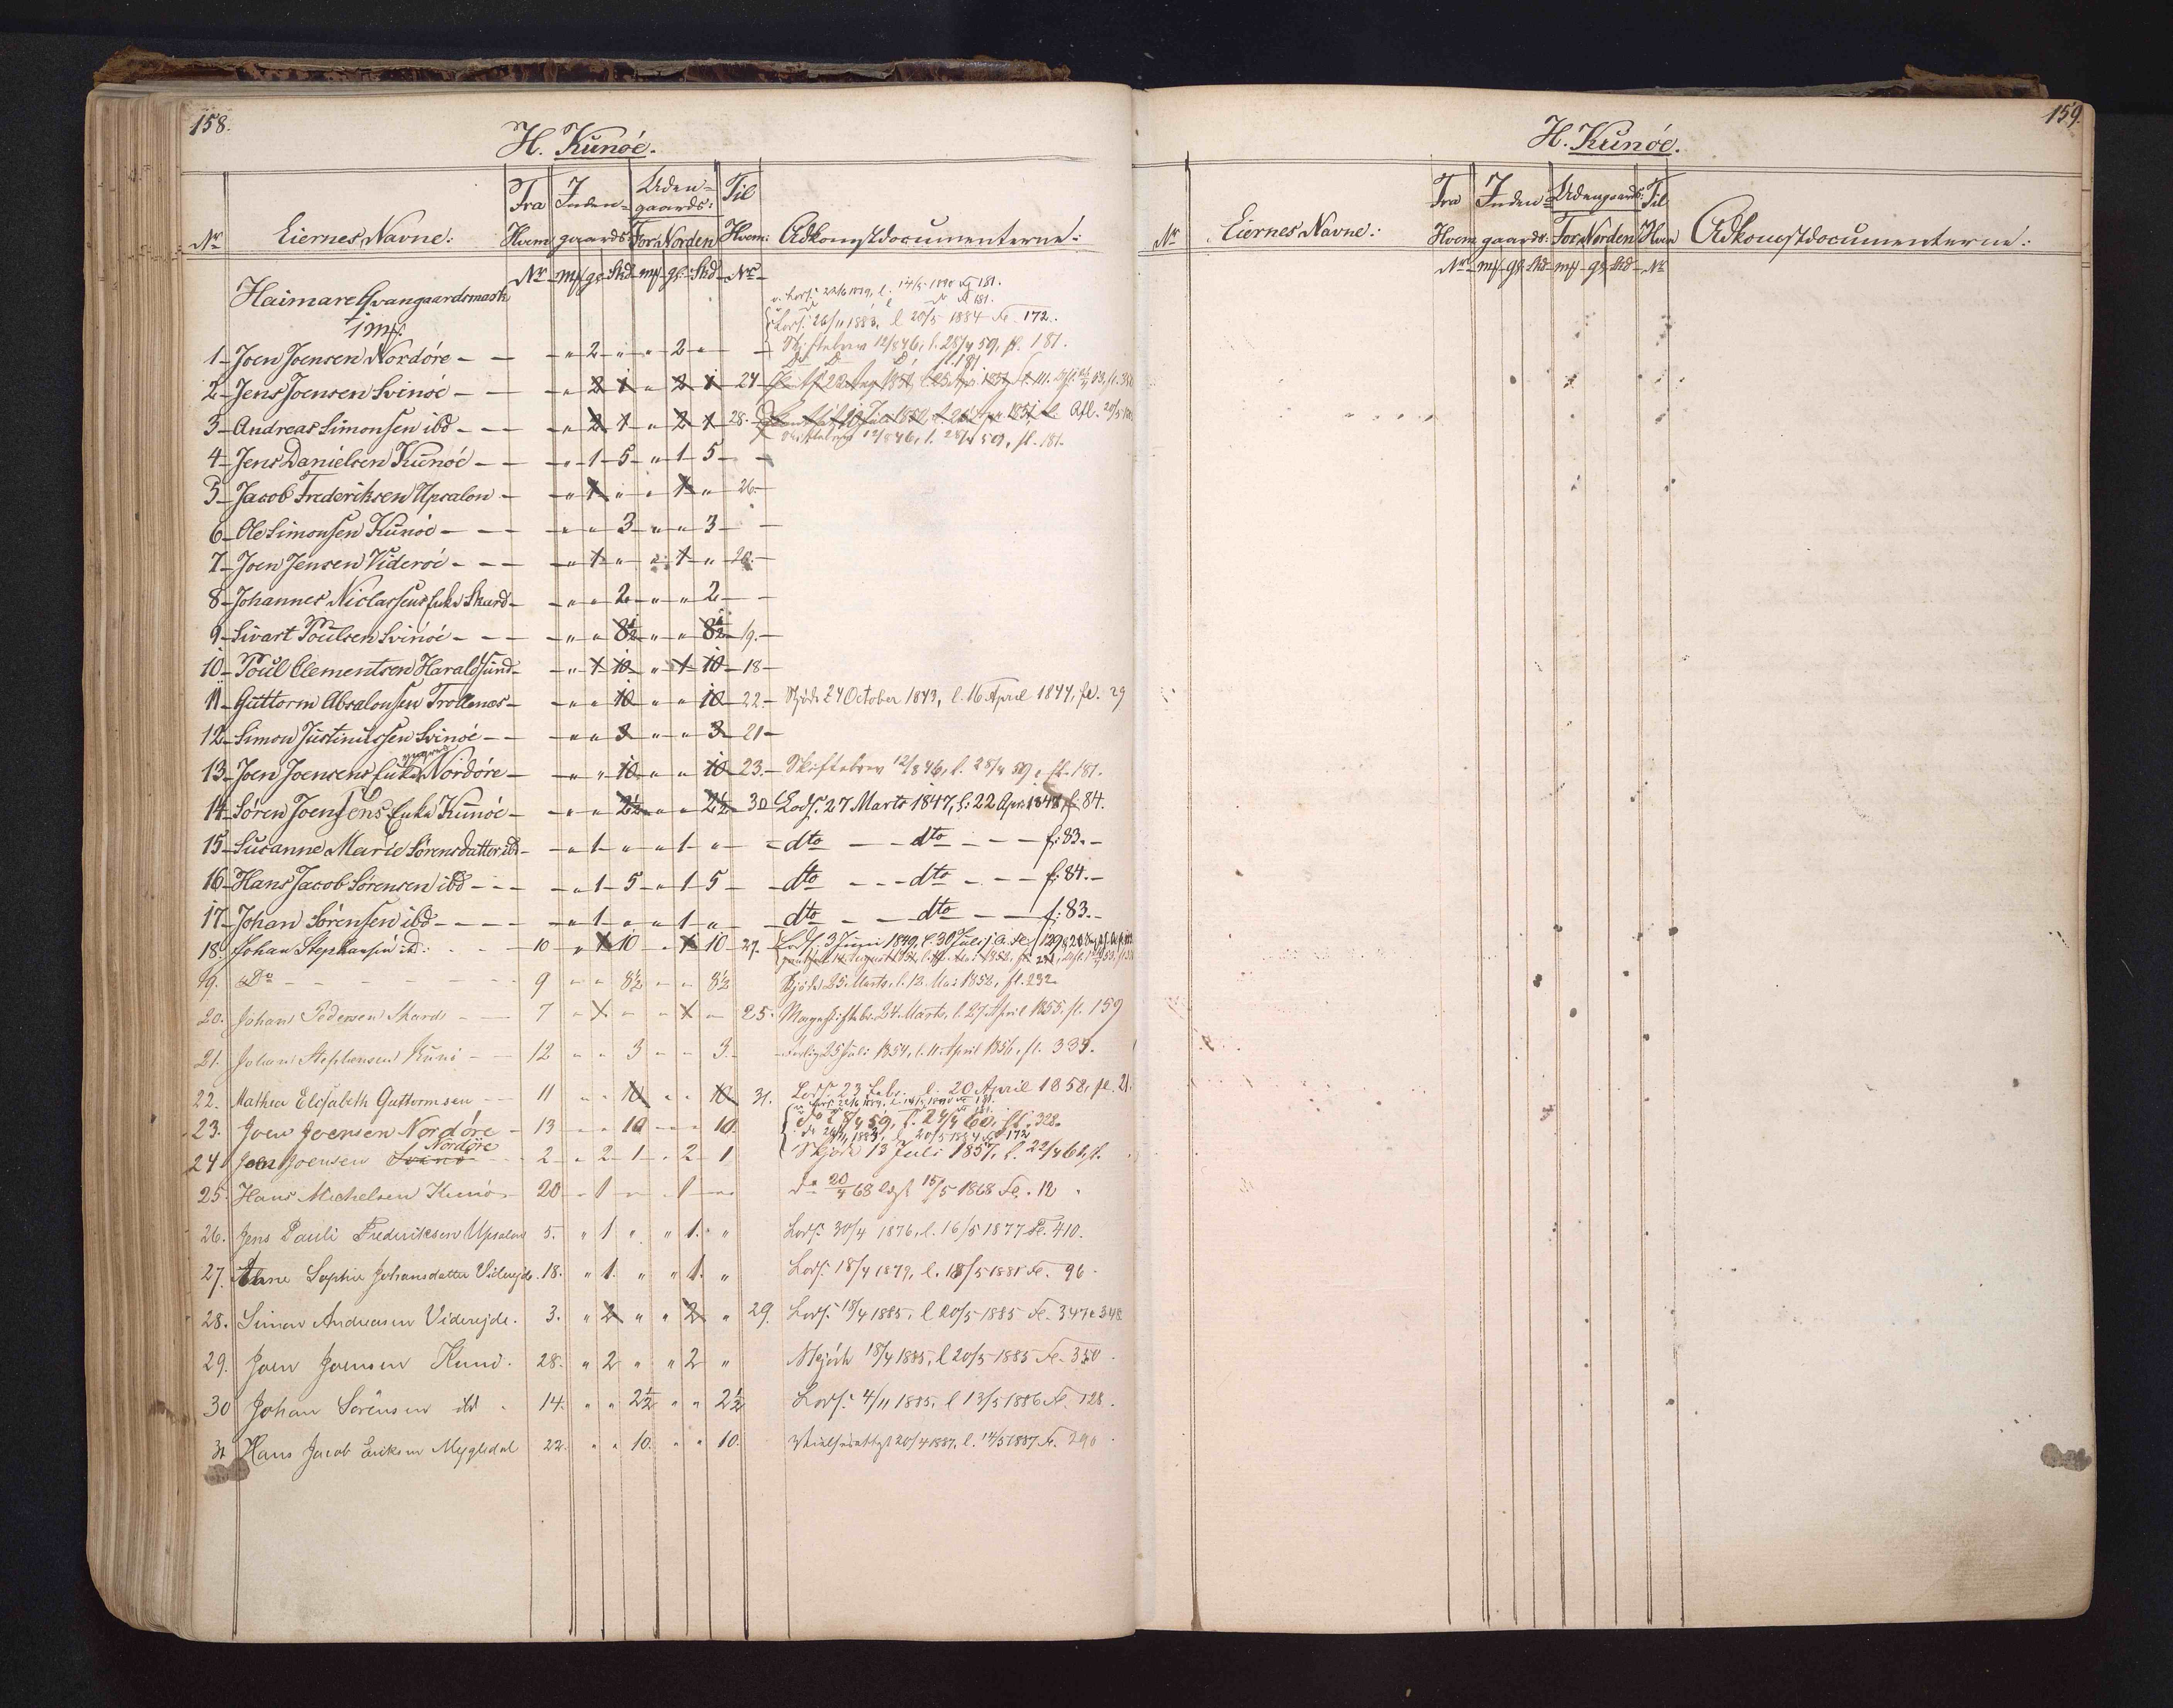 158.
H. Kunóe.
Nr Eiernes Navne: Fra Hvem Inden-gaards Uden-gaards: For Norden Til Hvem: Adkomstdocumenterne:
Nr mk gl Skd mk gl Skd Nr
Haimare Qvangaardsmark
1 mk:
v. Lods. 22/6 1889, l. 14/5 1890 Fl 181.
Lods. 26/11 1883, l 20/5 1884 Fl. 172.
1 Joen Joensen Nordóre - - - " 2 " " 2 " - Skiftebrev 12/8 46, l. 28/4 59, fl. 181.
2 Jens Joensen Svinóe - - " 2 1 " 2 1 24
3 Andreas Simonsen ibd - - - " 2 1 " 2 1 28. Afl. 20/5
Skiftebrev 12/8 46, l. 28/4 59, fl. 181.
4 Jens Danielsen Kunóe - - " 1 5 " 1 5 -
5 Jacob Frederiksen Upsalon - " 1 " " 1 " 26
6 Ole Simonsen Kunóe - - - " " 3 " " 3 -
7 Joen Jensen Videróe - - - " 1 " " 1 " 20.
8 Johannes Niclassens Enke Skard - " " 2 " " 2 -
9 Sivart Poulsen Svinóe - - - " " 8½ " " 8½ 19.
10 Poul Clementsen Haraldsund - " 1 10 " 1 10 18
11 Guttorm Absalonsen Trollenæs - " " 10 " " 10 22 - Skjöde 24 October 1843, l. 16 April 1844, fl. 29
12 Simon Justinussen Svinóe - - " " 3 " " 3 21
13 Joen Joensens Enke Nordóre - " " 10 " " 10 23. - Skiftebrev 12/8 46, l. 28/4 59, fl. 181.
14 Sóren Joensens Enke Kunóe - " " 2½ " " 2½ 30 Lods. 27 Marts 1847, l: 22 Apr. 1848, f. 84.
15 Susanne Marie Sórensdatter ibd - " 1 " " 1 " - dto - - dto - - - f: 83. -
16 Hans Jacob Sórensen ibd - - - " 1 5 " 1 5 - dto - - - dto - - - f: 84. -
17 Johan Sórensen ibd - - - - " 1 " " 1 " dto - - dto - - - f: 83. -
18. Johan Stephansen ibd: - - - 10 " 1 10 " 1 10 27. Lods. 3 Juni 1849, l. 30 Juli j. A. fl. 129
19. Do - - - - - - 9 " " 8½ " " 8½ Skjöde 25 Marts, l. 12. Mai 1852, fl. 232.
20. Johan Pedersen Skard - - 7 " 1 " " 1 " 25. Mageskiftebr. 24 Marts, l. 27 April 1855. fl. 159
21. Johan Stephansen Kunö - - 12 " " 3 " " 3. 25 Juli 1854, l. 11. April 1856, fl. 333.
22. Mathea Elisabeth Guttormsen - - 11 " " 10 " " 10 31. Lods. 23 Febr. l. 20 April 1858, fl. 21.
v. Lods. 22/6 1889, l. 14/5 1890 Fl 181.
23. Joen Joensen Nordóre - 13 " " 10 " " 10 59, l. 24/4 60, fl. 328.
Do 26/11 1883, l 20/5 1884 Fl 172
24 Joen Joensen Svinö Nordöre - 2 " 2 1 " 2 1 Skjöde 13 Juli 1857, l. 22/4 62, fl.
25. Hans Michelsen Kunö - 20 " 1 " " 1 " do 20/4 68 læst 15/5 1868 Fl. 12.
26. Jens Pauli Frederiksen Upsalon 5. " 1 " " 1. " Lods. 30/4 1876, l. 16/5 1877 Fl. 410.
27. Anne Sophie Johansdatter Viderejde. 18. " 1. " " 1. " Lods. 18/4 1879, l. 18/5 1881 Fl. 96.
28. Simon Andreasen Viderejde. 3. " 2 " " 2 " 29. Lods. 18/4 1885, l 20/5 1885 Fl. 347 & 348
29. Joen Joensen Kunö. 28. " 2 " " 2 " Skjöde 18/4 1885, l 20/5 1885 Fl. 350.
30 Johan Sörensen ibd. 14. " " 2½ " " 2½ Lods. 4/11 1885, l 13/5 1886 Fl. 128.
31 Hans Jacob Eriksen Mygledal 22. " " 10. " " 10. 20/4 1887, l. 14/5 1887 Fl. 290.
159.
H. Kunóe.
Nr Eiernes Navne: Fra Hvem Inden-gaards: Udengaards: For Norden Til Hvem Adkomstdocumenterne:
Nr mk gl Skd mk gl Skd Nr